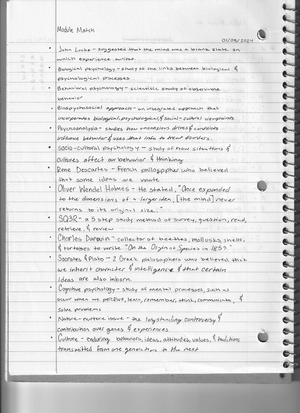 Module Match
01/08/2024
• John Locke - suggested that the mind was a blank slate on
which experience writes.
• Biological psychology - study of the links between biological &
psychological processes
• Behavioral psychology - scientific study of observable
behavior
• Biopsychosocial approach - an integrated approach that
incorporates biological, psychological, & social-cultural viewpoints
• Psychoanalysis - studies how unconscious drives & conflicts
influence behavior & uses that info to treat disorders.
• Socio-cultural psychology - study of how situations &
cultures affect our behavior & thinking
Rene Descartes - French philosopher who believed
that some ideas are innate
Oliver Wendel Holmes - He stated, "Once expanded
to the dimensions of a larger idea, [the mind] never
returns to its original size."
• SQ3R - a 5 step study method of survey, question, read,
retrieve, & review
Charles Darwin - collector of beetles, mollusks, shells,
& tortoises to write "On the Origin of Species in 1859"
• Socrates & Plato - 2 Greek philosophers who believed that
we inherit character & intelligence & that certain
ideas are also inborn.
• Cognitive psychology - study of mental processes, such as
occur when we perceive, learn, remember, think, communicate, &
solve problems
• Nature-nurture issue - the longstanding controversy &
contribution over genes & experiences
• Culture - enduring behaviors, ideas, attitudes, values, & traditions
transmitted from one generation to the next